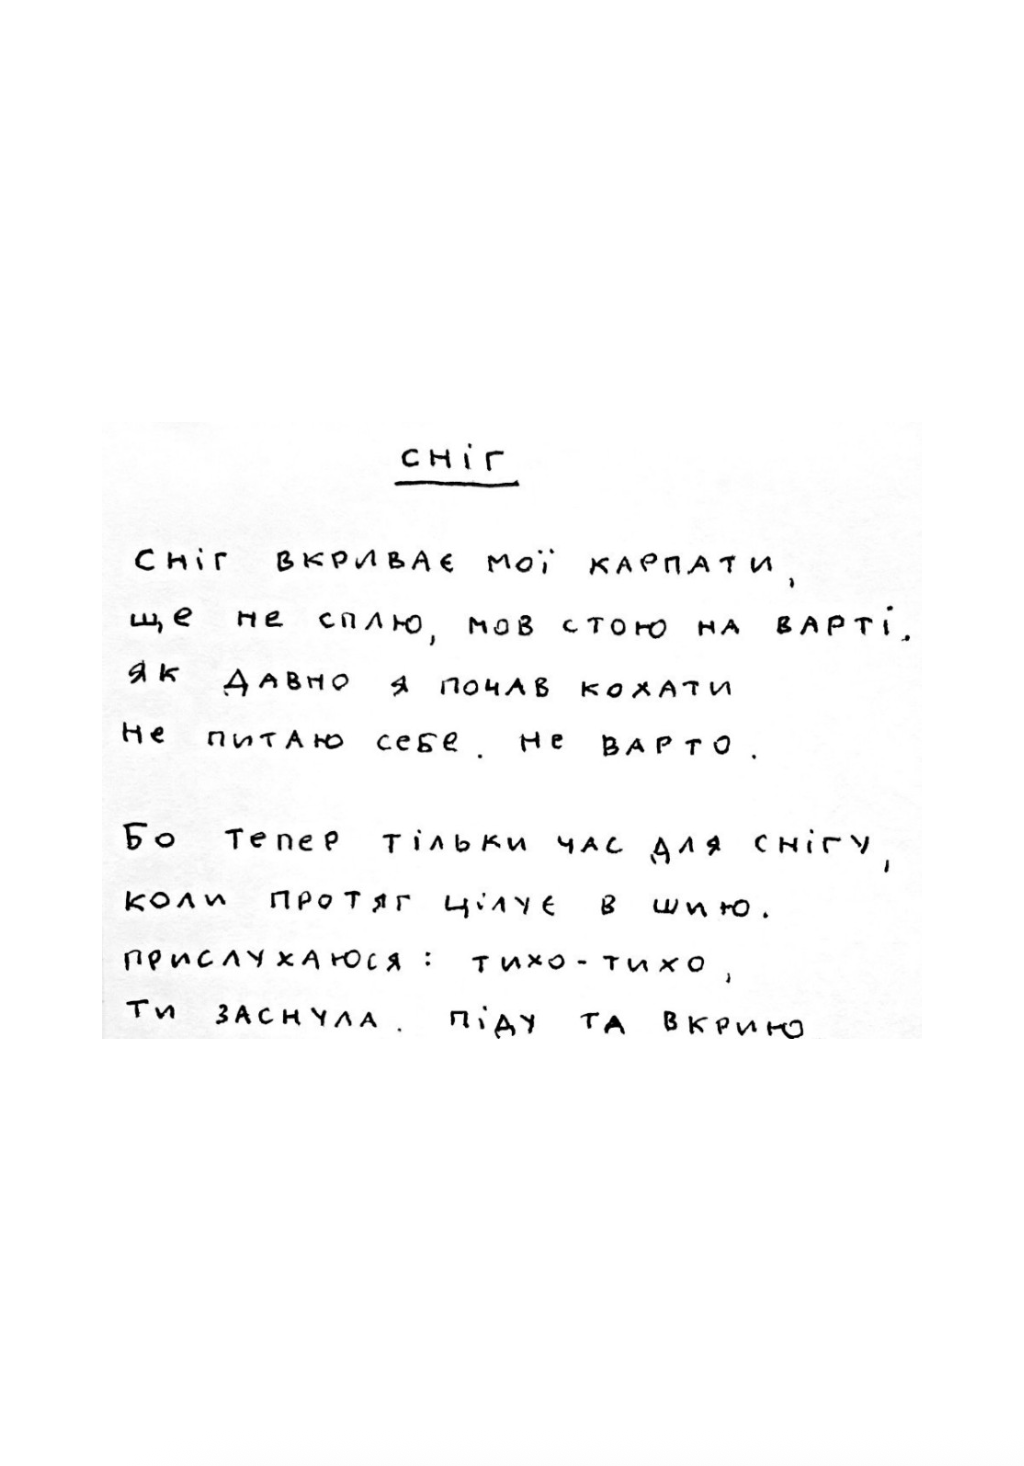 Сніг
Сніг вкриває мої Карпати,
ще не сплю, мов стою на варті.
Як давно я почав кохати
не питаю себе. Не варто.
Бо тепер тільки час для снігу,
коли протяг цілує в шию.
Прислухаюся: тихо-тихо,
ти заснула. Піду та вкрию